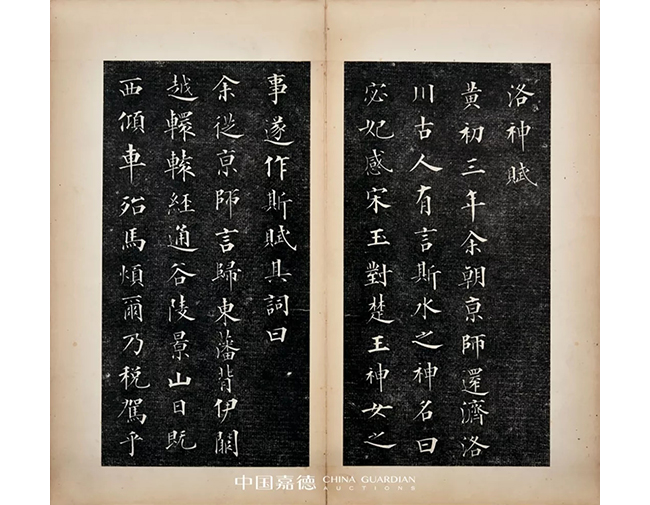 洛神賦
黄初三年余朝京師還濟洛
川古人有言斯水之神名曰
宓妃感宋玉對楚王神女之
事遂作斯賦其詞曰
余從京師言歸東藩背伊闕
越轘轅経通谷陵景山日既
西傾車殆馬煩爾乃税駕乎
中国嘉德 CHINA GUARDIAN
AUCTIONS